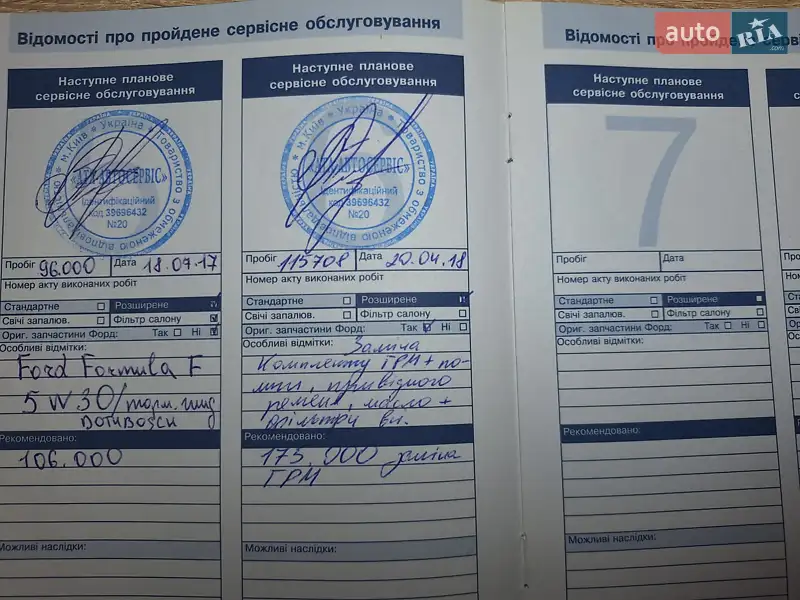 Відомості про пройдене сервісне обслуговування
Наступне планове
сервісне обслуговування
м.Київ * Україна * Товариство з обмеженою відповідальністю
«АТА АВТОСЕРВІС»
Ідентифікаційний
код 39696432
№20
Пробіг 96.000 Дата 18.07.17
Номер акту виконаних робіт
Стандартне Розширене
Свічі запалюв. Фільтр салону
Ориг. запчастини Форд: Так Ні
Особливі відмітки:
Ford Formula F
5W30/торм.
Рекомендовано:
106.000
Можливі наслідки:
Наступне планове
сервісне обслуговування
м.Київ * Україна * Товариство з обмеженою відповідальністю
«АТА АВТОСЕРВІС»
Ідентифікаційний
код 39696432
№20
Пробіг 115708 Дата 20.04.18
Номер акту виконаних робіт
Стандартне Розширене
Свічі запалюв. Фільтр салону
Ориг. запчастини Форд: Так Ні
Особливі відмітки: Заміна
Комплекту ГРМ + по-
мпи, привідного
ременя, масло +
фільтри
Рекомендовано:
175.000 заміна
ГРМ
Можливі наслідки:
Відомості про пройдене
Наступне планове
сервісне обслуговування
7
Пробіг Дата
Номер акту виконаних робіт
Стандартне Розширене
Свічі запалюв. Фільтр салону
Ориг. запчастини Форд: Так Ні
Особливі відмітки:
Рекомендовано:
Можливі наслідки:
auto RIA .com